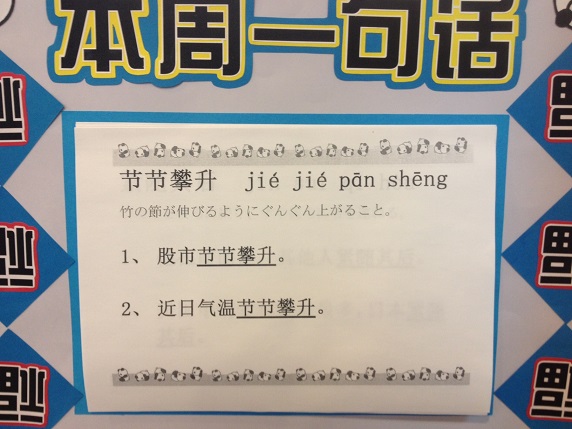 本周一句话
节节攀升 jié jié pān shēng
竹の節が伸びるようにぐんぐん上がること。
1、 股市节节攀升。
2、 近日气温节节攀升。